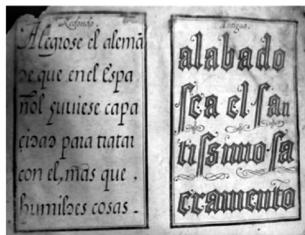 Redondo.
Alegrose el alemã
de que en el Espa
ñol huuiese capa
cidad para tratar
con el, mas que
humildes cosas.
Antigua.
alabado
sea el san
tissimo sa
cramento